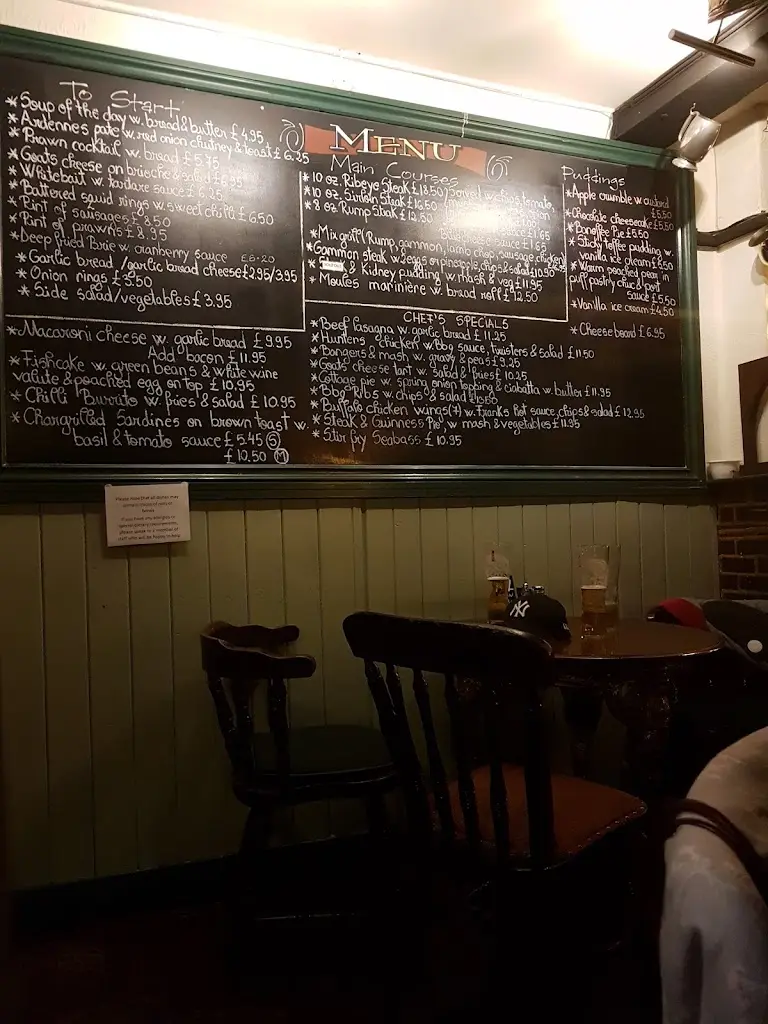 To Start
*Soup of the day w. bread & butter £4.95
*Ardennes pate w. red onion chutney & toast £6.25
*Prawn cocktail w. bread £5.75
*Goats cheese on brioche & salad £6.95
*Whitebait w. tartare sauce £6.25
*Battered squid rings w. sweet chilli £6.50
*Pint of sausages £8.50
*Pint of prawns £8.95
*Deep fried Brie w. cranberry sauce £6.20
*Garlic bread /garlic bread cheese £2.95/3.95
*Onion rings £3.50
*Side salad/vegetables £3.95
*Macaroni cheese w. garlic bread £9.95
Add bacon £11.95
*Fishcake w. green beans & white wine
valute & poached egg on top £10.95
*Chilli Burrito w. fries & salad £10.95
*Chargrilled Sardines on brown toast w.
basil & tomato sauce £5.45 (S)
£10.50 (M)
MENU
Main Courses
*10 oz. Ribeye Steak £18.50
*10 oz. Sirloin Steak £16.50
*8 oz Rump Steak £12.50
£1.65
sauce £1.65
*Mix grill (Rump, gammon, lamb chop, sausage, chicken)
*Gammon steak w. eggs or pineapple, chips & salad £10.95
* & Kidney pudding w. mash & veg £11.95
*Moules mariniere w. bread roll £12.50
CHEF'S SPECIALS
*Beef lasagna w. garlic bread £11.25
*Hunters chicken w. Bbq sauce, Twisters & salad £11.50
*Bangers & mash w. gravy & peas £9.25
*Goats cheese tart w. salad & fries £10.25
*Cottage pie w. spring onion topping & ciabatta w. butter £11.95
*Bbq Ribs w. chips & salad
*Buffalo chicken wings(7) w. Franks Hot sauce, chips & salad £12.95
*Steak & Guinness Pie w. mash & vegetables £11.95
*Stir fry Seabass £10.95
Puddings
*Apple crumble w custard
£5.50
*Chocolate cheesecake £5.50
*Banoffee Pie £5.50
*Sticky toffee pudding w.
vanilla ice cream £5.50
*Warm poached pear in
puff pastry choc & port
sauce £5.50
*Vanilla ice cream £4.50
*Cheeseboard £6.95
Please note that all dishes may
NY